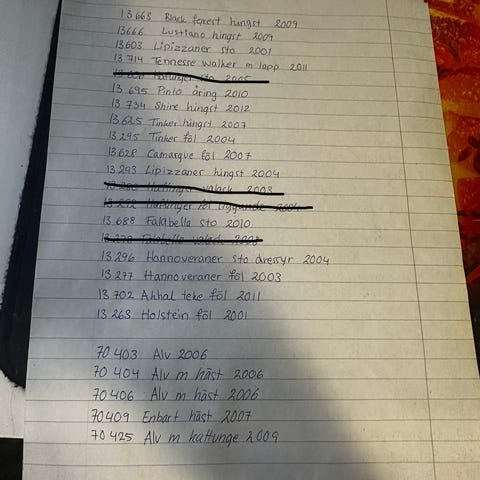 13665 Black forest hingst 2009
13666 Lusitano hingst 2009
13603 Lipizzaner sto 2001
13 714 Tennesse Walker m lapp 2011
Haflinger sto 2005
13 695 Pinto åring 2010
13 734 Shire hingst 2012
13 625 Tinker hingst 2007
13 295 Tinker föl 2004
13 628 Camarque föl 2007
13 293 Lipizzaner hingst 2004
Haflinger valack 2003
13 292 Haflinger föl liggande 2004
13 688 Falabella sto 2010
13 278 Falabella valack 2003
13 296 Hannoveraner sto dressyr 2004
13 277 Hannoveraner föl 2003
13 702 Akhal teke föl 2011
13 263 Holstein föl 2001
70 403 Alv 2006
70 404 Alv m häst 2006
70 406 Alv m häst 2006
70409 Enbart häst 2007
70 425 Alv m kattunge 2009